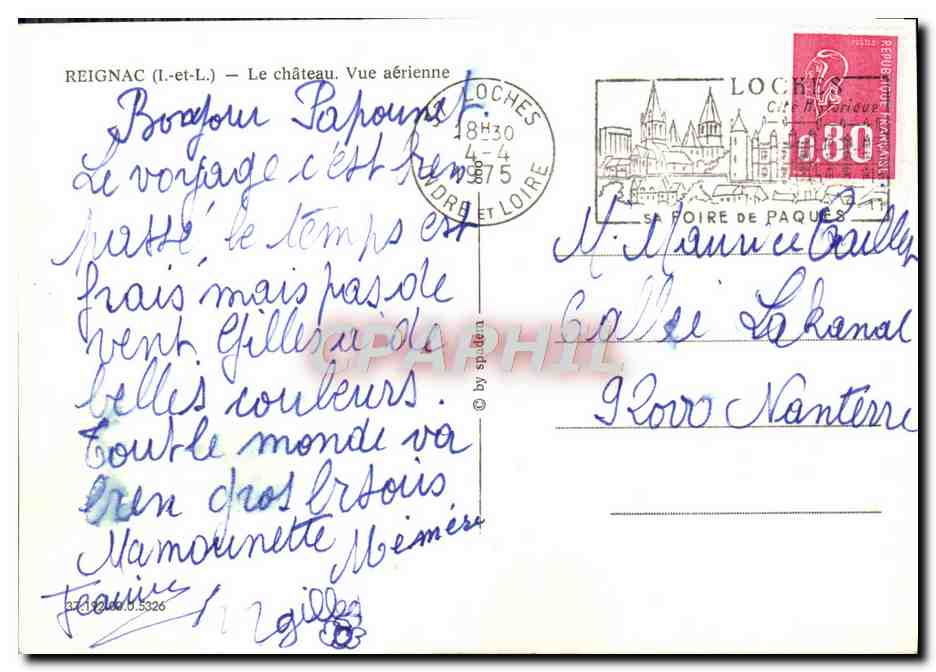 REIGNAC (I.-et-L.) — Le château. Vue aérienne
Bonjour Papounet.
Le voyage c'est bien
passé, le temps est
frais mais pas de
vent. Gilles a de
belles couleurs.
Tout le monde va
bien gros bisous
Mamounette Mémère
gilles
37.192.00.0.5326
© by spadem
LOCHES
18H30
4-4
1975
INDRE ET LOIRE
LOCHES
Cité Historique
SA FOIRE DE PAQUES
REPUBLIQUE FRANÇAISE
POSTES
0.80
M. Maurice
allée Lakanal
92000 Nanterre
CPAPHIL